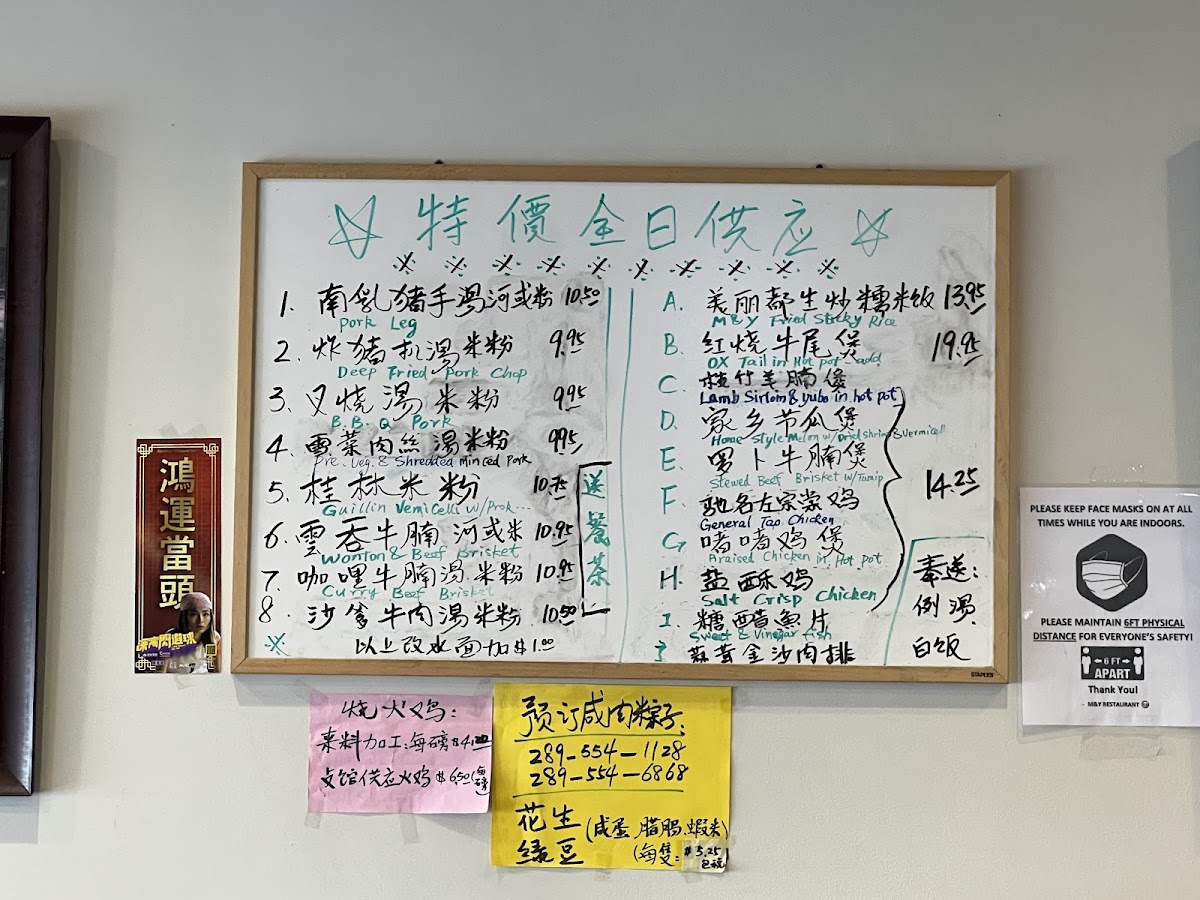 特價全日供应
1. 南乳猪手湯河或粉 10.50
Pork Leg
2. 炸猪扒湯米粉 9.95
Deep Fried Pork Chop
3. 叉烧湯米粉 9.95
B.B.Q Pork
4. 雪菜肉丝湯米粉 9.95
Pre. Veg. & Shredded minced Pork
5. 桂林米粉 10.75
Guillin Vemicelli w/Prok...
6. 雲吞牛腩河或米 10.95
Wonton & Beef Brisket
7. 咖哩牛腩湯米粉 10.95
Curry Beef Brisket
8. 沙爹牛肉湯米粉 10.50
※ 以上改水面加$1.00
送餐茶
A. 美丽都生炒糯米饭 13.95
M&Y Fried Sticky Rice
B. 红烧牛尾煲 19.95
OX Tail in Hot pot add
C. 枝竹羊腩煲
Lamb Sirloin & yubo in hot pot
D. 家乡节瓜煲
Home Style Melon w/Dried shrimp & Vermicelli
E. 萝卜牛腩煲
Stewed Beef Brisket w/Turnip
F. 驰名左宗棠鸡
General Tao Chicken
G. 啫啫鸡煲
Braised Chicken in Hot pot
H. 盐酥鸡
Salt Crisp Chicken
I. 糖醋魚片
Sweet & Vinegar fish
J. 蒜茸金沙肉排
14.25
奉送:
例湯
白饭
STAPLES
鴻運當頭
PLEASE KEEP FACE MASKS ON AT ALL
TIMES WHILE YOU ARE INDOORS.
PLEASE MAINTAIN 6FT PHYSICAL
DISTANCE FOR EVERYONE'S SAFETY!
6 FT
APART
Thank You!
- M&Y RESTAURANT
烧火鸡:
来料加工:每磅$4.20
贞馆供应火鸡$6.50(每磅)
预订咸肉粽子:
289-554-1128
289-554-6868
花生
绿豆
(咸蛋.腊腸.蝦米)
(每隻: $5.25
包税